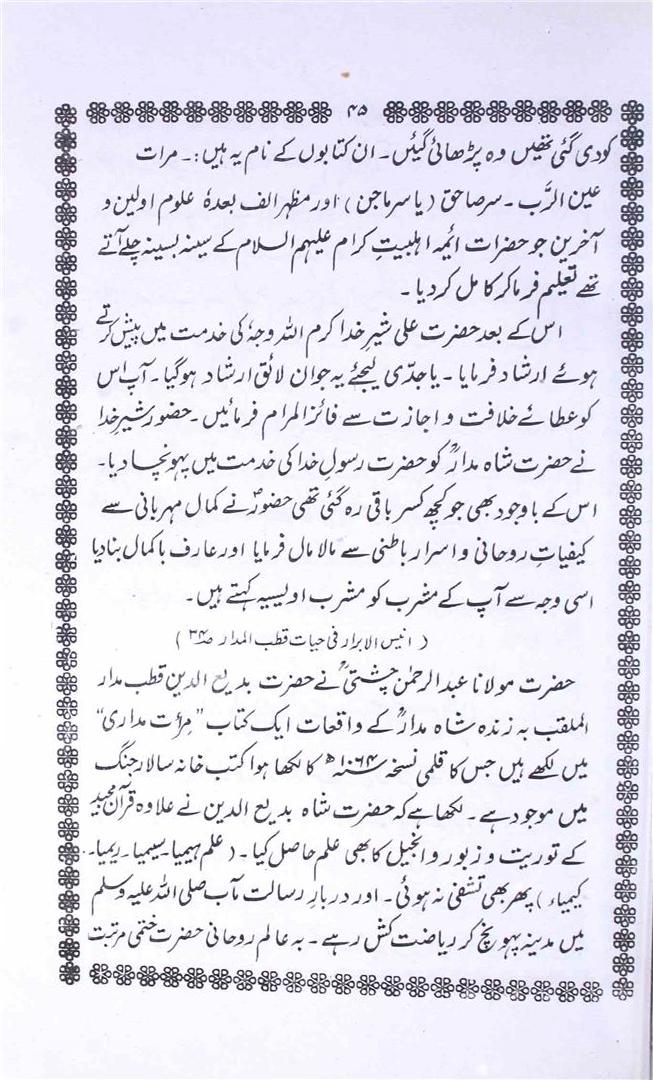 ۴۵
کو دی گئی تھیں وہ پڑھائی گئیں۔ ان کتابوں کے نام یہ ہیں:۔ مرات
عین الرَّب۔ سر صاحق (یا سرماجن) اور مظہر الف بعدہٗ علوم اولین و
آخرین جو حضرات ائمہ اہلبیتِ کرام علیہم السلام کے سینہ بسینہ چلے آتے
تھے تعلیم فرما کر کامل کر دیا۔
اس کے بعد حضرت علی شیرِ خدا کرم اللہ وجہٗ کی خدمت میں پیش کرتے
ہوئے ارشاد فرمایا۔ یا جدّی لیجئے یہ جوان لائق ارشاد ہو گیا۔ آپ اس
کو عطائے خلافت و اجازت سے فائز المرام فرمائیں۔ حضور شیرِ خدا
نے حضرت شاہ مدارؒ کو حضرت رسولِ خدا کی خدمت میں پہونچا دیا۔
اس کے باوجود بھی جو کچھ کسر باقی رہ گئی تھی حضورؐ نے کمال مہربانی سے
کیفیاتِ روحانی و اسرار باطنی سے مالا مال فرمایا اور عارف با کمال بنا دیا
اسی وجہ سے آپ کے مشرب کو مشرب اویسیہ کہتے ہیں۔
(انیس الابرار فی حیات قطب المدار صـ۳۴)
حضرت مولانا عبدالرحمٰن چشتیؒ نے حضرت بدیع الدین قطب مدار
الملقب بہ زندہ شاہ مدارؒ کے واقعات ایک کتاب ”مرأت مداری“
میں لکھے ہیں جس کا قلمی نسخہ سنہ ۱۰۶۴ھ کا لکھا ہوا کتب خانہ سالار جنگ
میں موجود ہے۔ لکھا ہے کہ حضرت شاہ بدیع الدین نے علاوہ قرآن مجید
کے توریت و زبور و انجیل کا بھی علم حاصل کیا۔ (علم ہیمیا۔ سیمیا۔ ریمیا۔
کیمیاء) پھر بھی تشفی نہ ہوئی۔ اور دربارِ رسالت مآب صلی اللہ علیہ وسلم
میں مدینہ پہونچ کر ریاضت کش رہے۔ بہ عالم روحانی حضرت ختمی مرتبت